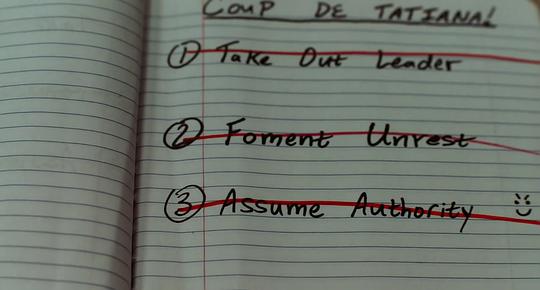 COUP DE TATIANA!
① Take Out Leader
② Foment Unrest
③ Assume Authority